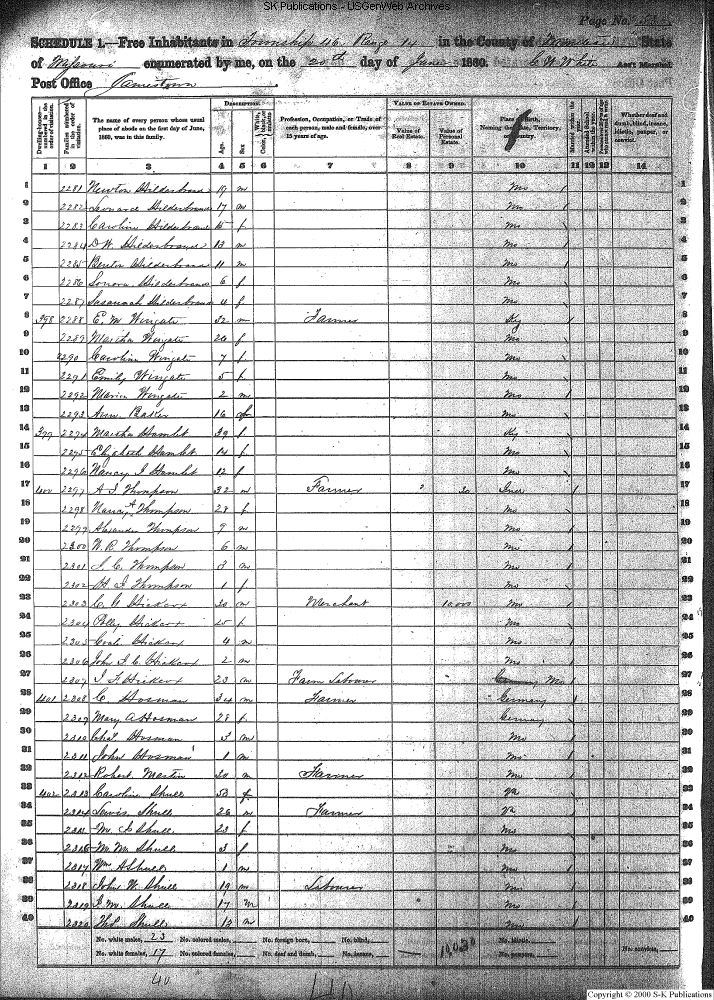 SK Publications - USGenWeb Archives
Page No.
SCHEDULE 1.—Free Inhabitants in Township 46 Range 14 in the County of State
of Missouri enumerated by me, on the 20th day of June 1860. C W White Ass't Marshal
Post Office Jamestown
Dwelling-houses—numbered in the order of visitation.
Families numbered in the order of visitation.
The name of every person whose usual place of abode on the first day of June, 1860, was in this family.
DESCRIPTION.
Age.
Sex
Color, White, black, or mulatto
Profession, Occupation, or Trade of each person, male and female, over 15 years of age.
VALUE OF ESTATE OWNED.
Value of Real Estate.
Value of Personal Estate.
Place of Birth, Naming the State, Territory, or Country.
Married within the year.
Attended School within the year.
Whether deaf and dumb, blind, insane, idiotic, pauper, or convict.
1 2 3 4 5 6 7 8 9 10 11 12 13 14
1 2281 Newton Hilderbrand 19 m Mo 1
2 2282 Hilderbrand 17 m Mo 2
3 2283 Caroline Hilderbrand 15 f Mo 3
4 2284 D W. Hilderbrand 13 m Mo 4
5 2285 Benton Hilderbrand 11 m Mo 5
6 2286 Lonora Hilderbrand 6 f Mo 6
7 2287 Susannah Hilderbrand 4 f Mo 7
8 398 2288 E. M Wingate 32 m Farmer Ky 8
9 2289 Martha Wingate 26 f Mo 9
10 2290 Caroline Wingate 7 f Mo 10
11 2291 Emily Wingate 5 f Mo 11
12 2292 Marion Wingate 2 m Mo 12
13 2293 Ann Baker 16 f Mo 13
14 399 2294 Martha Hamlet 39 f Ky 14
15 2295 Elizabeth Hamlet 14 f Mo 15
16 2296 Nancy J Hamlet 12 f Mo 16
17 400 2297 A J Thompson 32 m Farmer 17
18 2298 Nancy A Thompson 28 f Mo 18
19 2299 Alexander Thompson 9 m Mo 19
20 2300 W. R. Thompson 6 m Mo 20
21 2301 J. C. Thompson 3 m Mo 21
22 2302 H. J Thompson 1 f Mo 22
23 2303 C. H Hickcox 30 m Merchant 10,000 Mo 23
24 2304 Polly Hickcox f Mo 24
25 2305 Hickcox 4 m Mo 25
26 2306 John J. C. Hickcox 2 m Mo 26
27 2307 J. F Hickcox 23 m Farm Labourer Mo 27
28 401 2308 C. Hosman 34 m Farmer Germany 28
29 2309 Mary A Hosman 28 f Germany 29
30 2310 Chas Hosman 3 m Mo 30
31 2311 John Hosman 1 m Mo 31
32 2312 Robert Martin 30 m Farmer Mo 32
33 402 2313 Caroline Shull 53 f Va 33
34 2314 Lewis Shull 26 m Farmer Va 34
35 2315 M. J Shull 23 f Mo 35
36 2316 M. M Shull 3 f Mo 36
37 2317 Wm A Shull 1 m Mo 37
38 2318 John W. Shull 19 m Labourer Mo 38
39 2319 J. M. Shull 17 m Mo 39
40 2320 Thos Shull 12 m Mo 40
No. white males, 23 No. colored males, No. foreign born, No. blind,
No. white females, 17 No. colored females, No. deaf and dumb, No. insane, 10,030 No. idiotic, No. paupers, No. convicts,
40
Copyright © 2000 S-K Publications